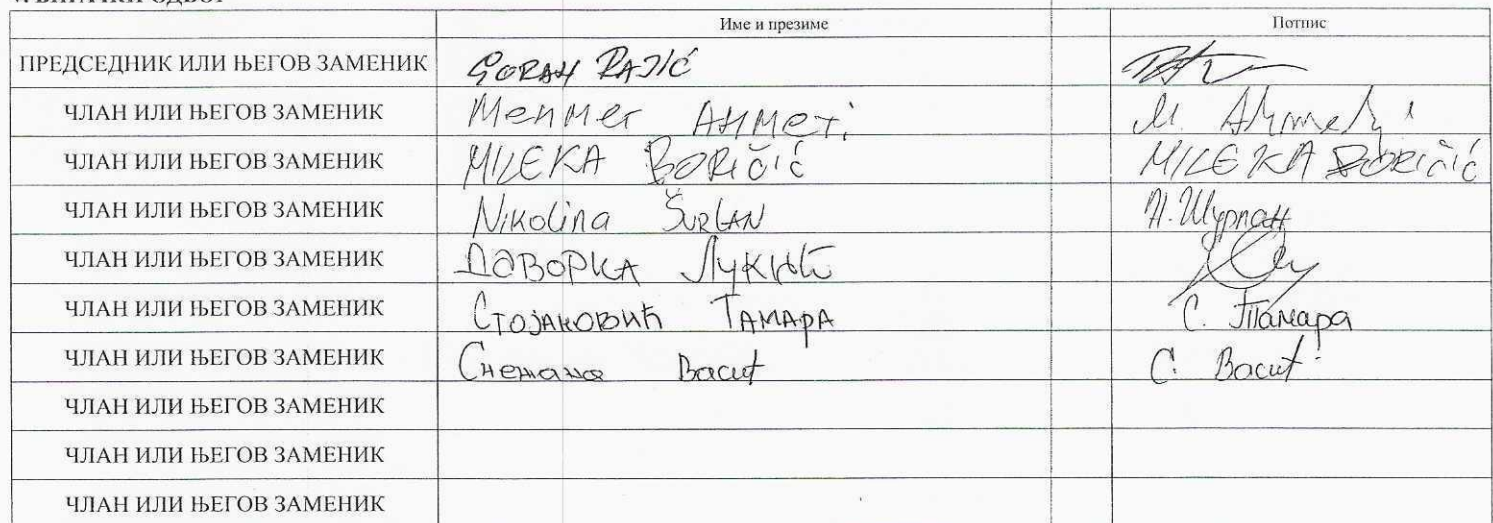 Име и презиме Потпис
ПРЕДСЕДНИК ИЛИ ЊЕГОВ ЗАМЕНИК GORAN RAJIĆ
ЧЛАН ИЛИ ЊЕГОВ ЗАМЕНИК Мехмет Ахмети М. Ахмети
ЧЛАН ИЛИ ЊЕГОВ ЗАМЕНИК MILEKA BORIČIĆ MILEKA BORIČIĆ
ЧЛАН ИЛИ ЊЕГОВ ЗАМЕНИК Nikolina ŠURLAN Н. Шурлан
ЧЛАН ИЛИ ЊЕГОВ ЗАМЕНИК ДАВОРКА Лукић
ЧЛАН ИЛИ ЊЕГОВ ЗАМЕНИК СТОЈАНОВИЋ ТАМАРА С. Тамара
ЧЛАН ИЛИ ЊЕГОВ ЗАМЕНИК Снежана Васић С. Васић
ЧЛАН ИЛИ ЊЕГОВ ЗАМЕНИК
ЧЛАН ИЛИ ЊЕГОВ ЗАМЕНИК
ЧЛАН ИЛИ ЊЕГОВ ЗАМЕНИК